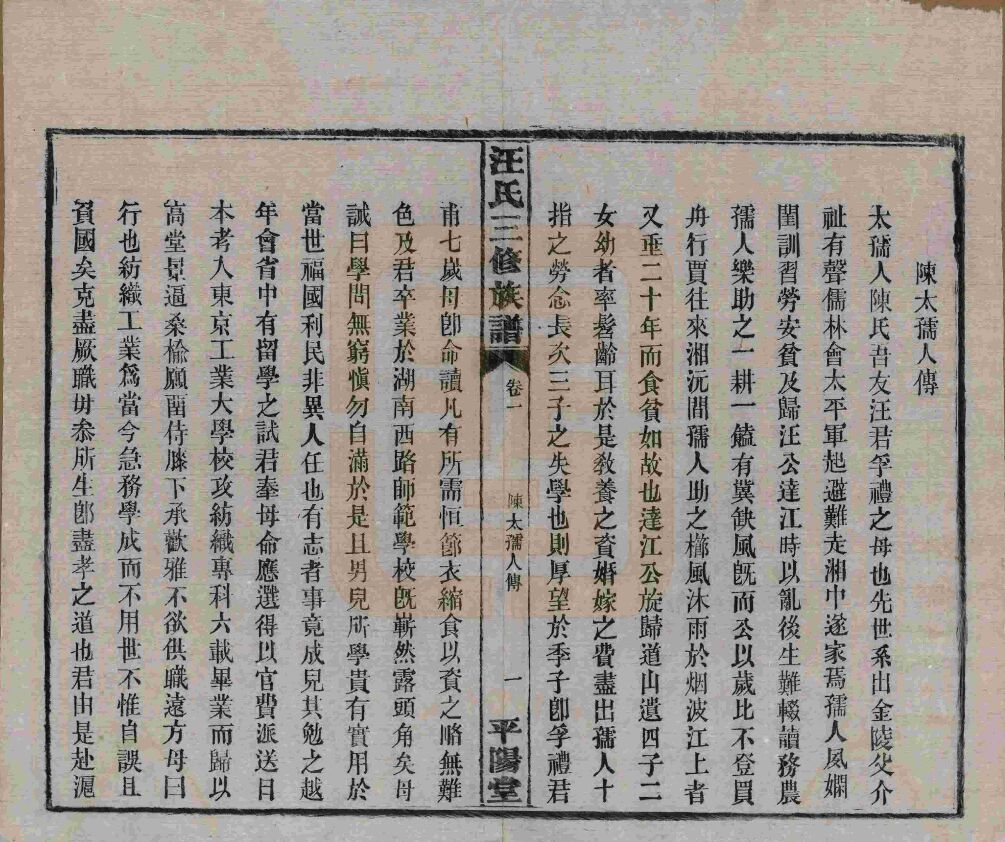 陳太孺人傳
太孺人陳氏吾友汪君孚禮之母也先世系出金陵父介
祉有聲儒林會太平軍起避難走湘中遂家焉孺人夙嫻
閨訓習勞安貧及歸汪公達江時以亂後生難輟讀務農
孺人樂助之一耕一饁有冀缺風既而公以歲比不登買
舟行賈往來湘沅間孺人助之櫛風沐雨於烟波江上者
又垂二十年而食貧如故也達江公旋歸道山遺四子二
女幼者率髫齡耳於是教養之資婚嫁之費盡出孺人十
指之勞念長次三子之失學也則厚望於季子卽孚禮君
汪氏三修族譜
卷一
陳太孺人傳
一
平陽堂
甫七歲母卽命讀凡有所需恒節衣縮食以資之略無難
色及君卒業於湖南西路師範學校既嶄然露頭角矣母
誡曰學問無窮愼勿自滿於是且男兒所學貴有實用於
當世福國利民非異人任也有志者事竟成兒其勉之越
年會省中有留學之試君奉母命應選得以官費派送日
本考入東京工業大學校攻紡織專科六載畢業而歸以
高堂景逼桑榆願留侍膝下承歡雅不欲供職遠方母曰
行也紡織工業爲當今急務學成而不用世不惟自誤且
負國矣克盡厥職毋忝所生卽盡孝之道也君由是赴滬